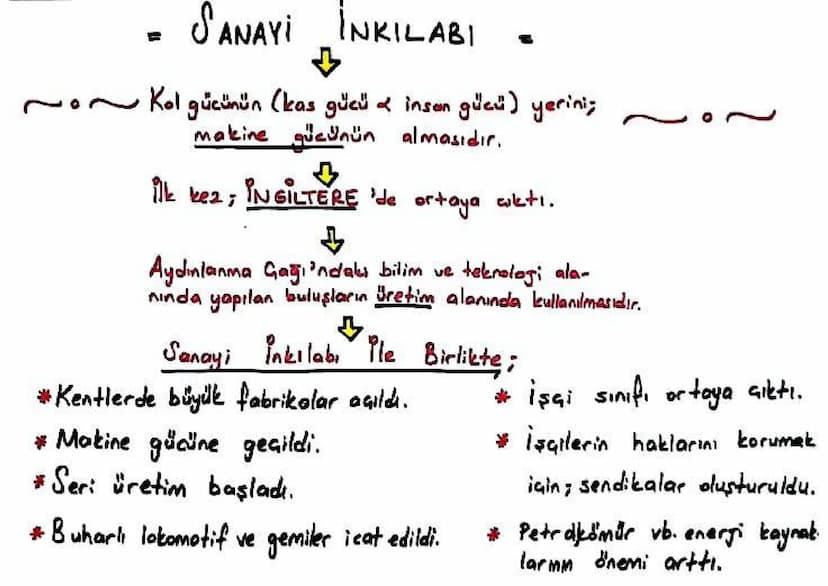 = SANAYİ İNKILABI =
Kol gücünün (kas gücü & insan gücü) yerini;
makine gücünün almasıdır.
İlk kez; İNGİLTERE 'de ortaya çıktı.
Aydınlanma Çağı'ndaki bilim ve teknoloji ala-
nında yapılan buluşların üretim alanında kullanılmasıdır.
Sanayi İnkılabı İle Birlikte;
* Kentlerde büyük fabrikalar açıldı.
* Makine gücüne geçildi.
* Seri üretim başladı.
* Buharlı lokomotif ve gemiler icat edildi.
* İşçi sınıfı ortaya çıktı.
* İşçilerin haklarını korumak
için; sendikalar oluşturuldu.
* Petrol, kömür vb. enerji kaynak-
larının önemi arttı.